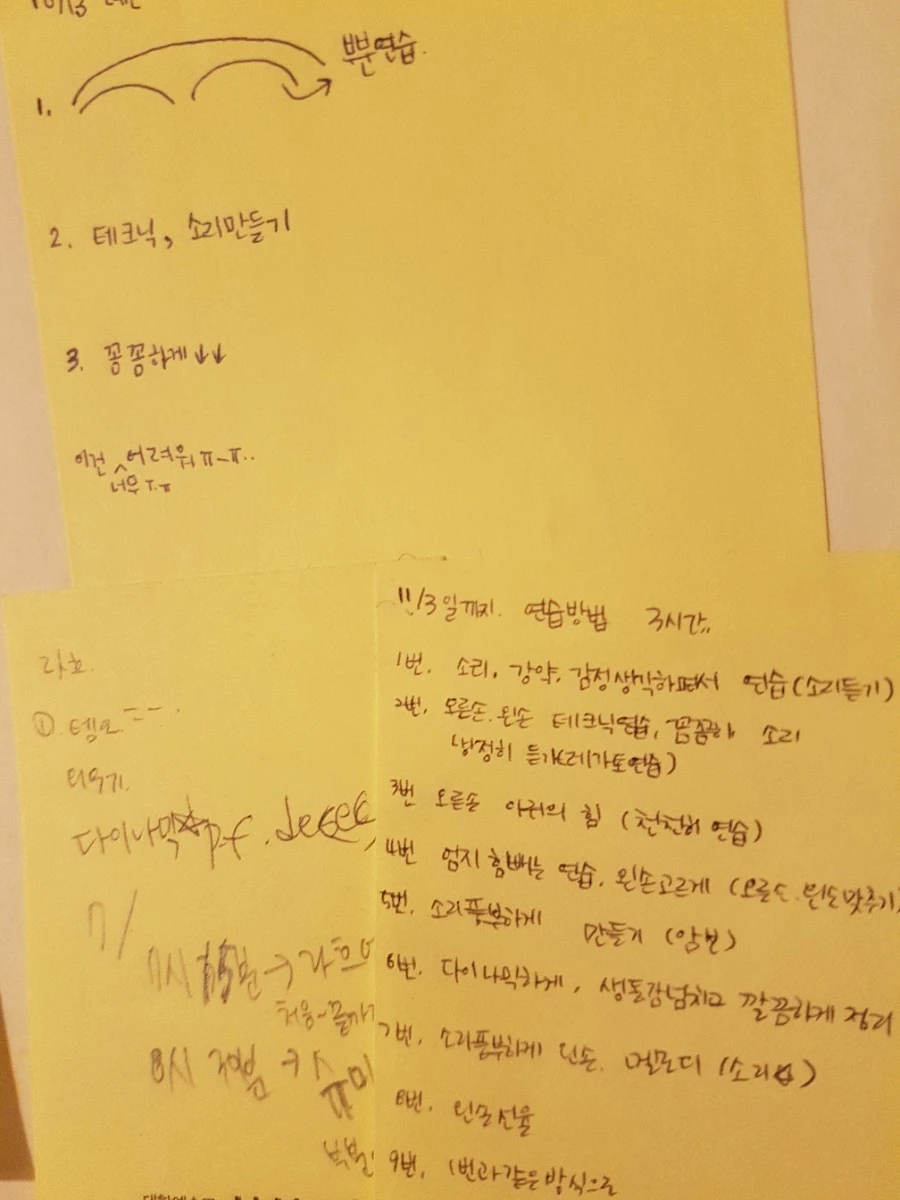 부분연습.
1.
2. 테크닉, 소리만들기
3. 꽁꽁하게 ↓↓
이건 어려워 ㅠ-ㅠ..
너무 ㅜ.ㅠ
11/3일까지. 연습방법 3시간,,
1번. 소리, 강약, 감정생각하면서 연습(소리듣기)
2번. 오른손.왼손 테크닉연습, 꼼꼼히 소리
냉정히 듣기(레가토연습)
3번 오른손 아귀의 힘 (천천히 연습)
4번 엄지힘빼는 연습, 왼손고르게 (오른손.왼손맞추기)
5번. 소리풍부하게 만들기 (암보)
6번. 다이나믹하게, 생동감넘치고 깔끔하게 정리
7번. 소리풍부하게 딘손. 멜로디 (소리)
8번. 왼손선율
9번, 1번과같은방식으로
라흐.
① 템포
외우기.
다이나믹 p.f.
7/
처음~끝까지
8시 30분